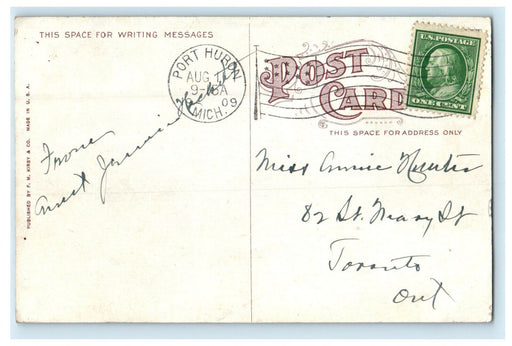 THIS SPACE FOR WRITING MESSAGES
PORT HURON
AUG 11
9-
MICH.
09
POST
CARD
THIS SPACE FOR ADDRESS ONLY
U.S. POSTAGE
ONE CENT
PUBLISHED BY F. M. KIRBY & CO. MADE IN U. S. A.
From
Aunt
Miss Annie
82 St. Mary St
Toronto
Ont